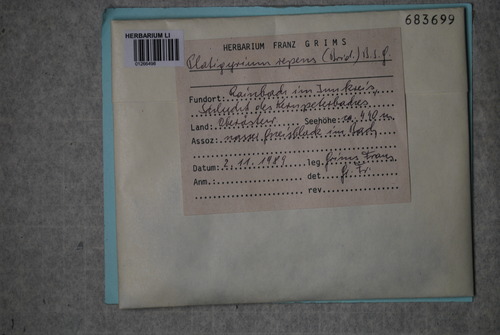 683699
HERBARIUM LI
HERBARIUM FRANZ GRIMS
Platigyrium repens (Brid.) B.S.G.
Fundort: Rainbach im Innkreis,
Schlucht des
Land: Oberösterr. Seehöhe: ca. 440 m
Assoz: nasser Gneisblock im Bach
Datum: 2.11.1989 leg. Grims Franz
Anm.: det. G. Fr.
rev.